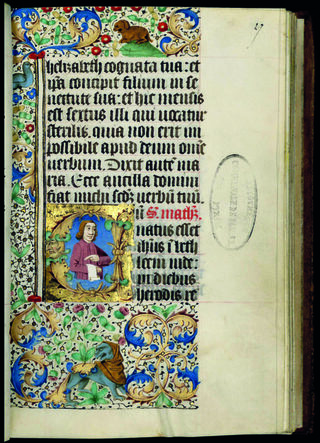 27
helizabeth cognata tua: et
ip̄a concipit filium in se
nectute sua: et hic mensis
est sextus illi qui uocatur
sterilis. quia non erit im
possibile apud deum om̄e
uerbum. Dixit aute᷑ ma
ria. Ecce ancilla domini
fiat michi scd᷑ uerbū tuū.
S. math᷑.
natus esset
ihūs ī beth
leem iude:
in diebus
herodis re